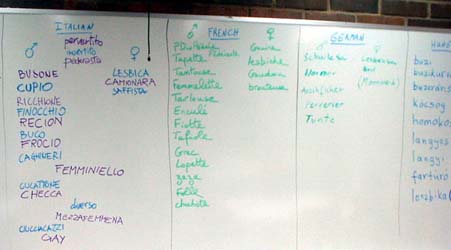 ITALIAN
♂
pervertito
invertito
pederasta
♀
BUSONE
CUPIO
RICCHIONE
FINOCCHIO
RECION
BUCO
FROCIO
CAGHINERI
FEMMINIELLO
CULATTONE
CHECCA
diverso
MEZZAFEMMENA
GAY
LESBICA
CAMIONARA
SAFFISTA
♂
FRENCH
♀
Tapette
Tantouse
femmelette
Tarlouse
Enculé
Fiotte
Tafiole
Lopette
zaza
Folle
Gouine
lesbiche
Goudou
brouteuse
♂
GERMAN
♀
Arschficker
Perverser
Tunte
buzi
buzikurv
buzeráns
kocsog
homokos
langyos
langyi
leszbika